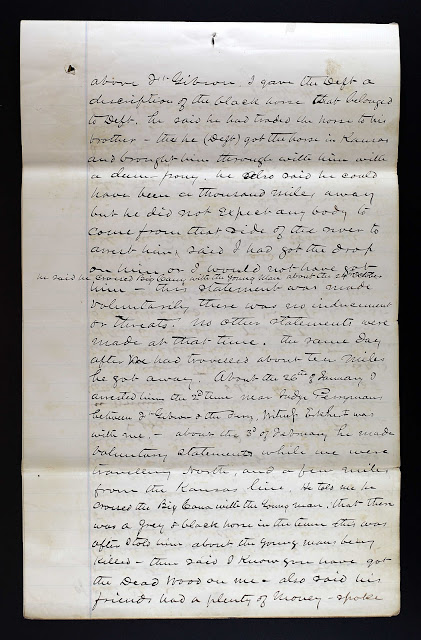 above Ft Gibson. I gave the Deft a
description of the black horse that belonged
to Deft. he said he had traded the horse to his
brother - the he (Deft) got the horse in Kansas
and brought him through with him with
a dun pony. he also said he could
have been a thousand miles away
but he did not expect any body to
come from that side of the river to
arrest him, said I had got the drop
on him or I would not have got
he said he crossed Big Caney with the young man about the 1st October
him - this statement was made
voluntarily there was no inducement
or threats. No other statements were
made at that time. the same day
after we had travelled about ten miles
he got away. - About the 26th of January I
arrested him the 2d time near Judy Perrymans
between Ft Gibson & the Ferry, Witness was
with me, - about the 3d of February he made
voluntary statements while we were
travelling North, and a few miles
from the Kansas line. He told me he
crossed the Big Cana with the Young man, that there
was a Grey & black horse in the team - this was
after I told him about the young man being
killed - then said I Know you have got
the Dead Wood on me - also said his
friends had a plenty of Money - spoke